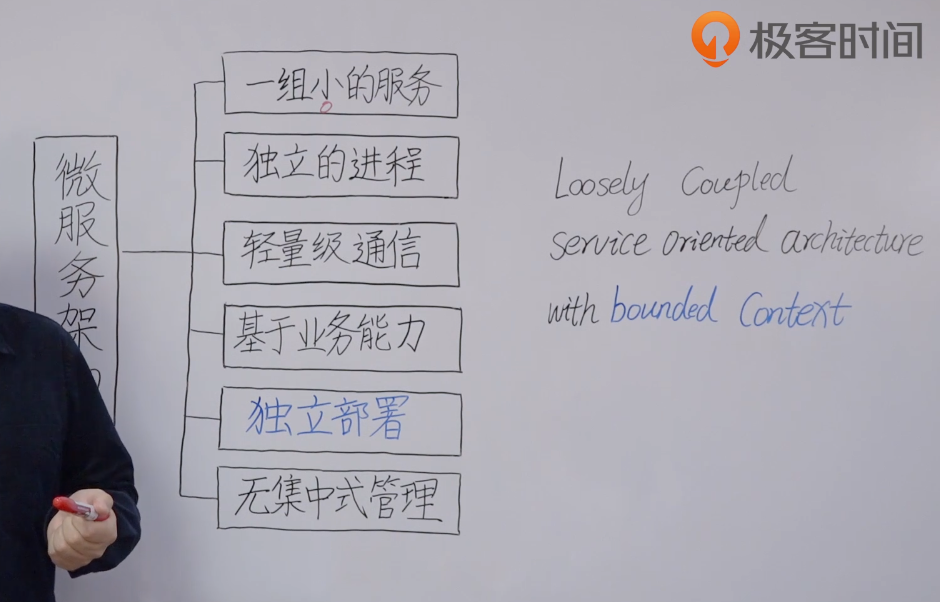 极客时间
微服务架
一组小的服务
独立的进程
轻量级通信
基于业务能力
独立部署
无集中式管理
Loosely Coupled
service oriented architecture
with bounded Context